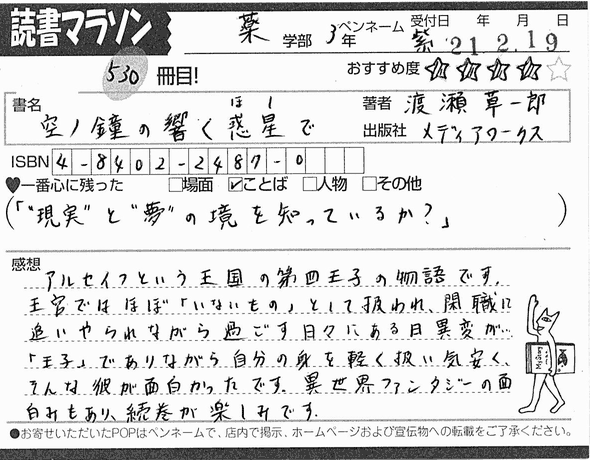 読書マラソン
薬 学部 3年 ペンネーム 紫 受付日 年 月 日
'21 2.19
530 冊目! おすすめ度 ★★★★☆
書名 空ノ鐘の響く惑星で ほし
著者 渡瀬草一郎
出版社 メディアワークス
ISBN 4-8402-2487-0
♥一番心に残った □場面 ☑ことば □人物 □その他
(「"現実"と"夢"の境を知っているか?」)
感想
アルセイフという王国の第四王子の物語です。
王宮ではほぼ「いないもの」として扱われ、閑職に
追いやられながら過ごす日々にある日異変が…
「王子」でありながら自分の身を軽く扱い気安く、
そんな彼が面白かったです。異世界ファンタジーの面
白みもあり、続巻が楽しみです。
●お寄せいただいたPOPはペンネームで、店内で掲示、ホームページおよび宣伝物への転載をご了承ください。